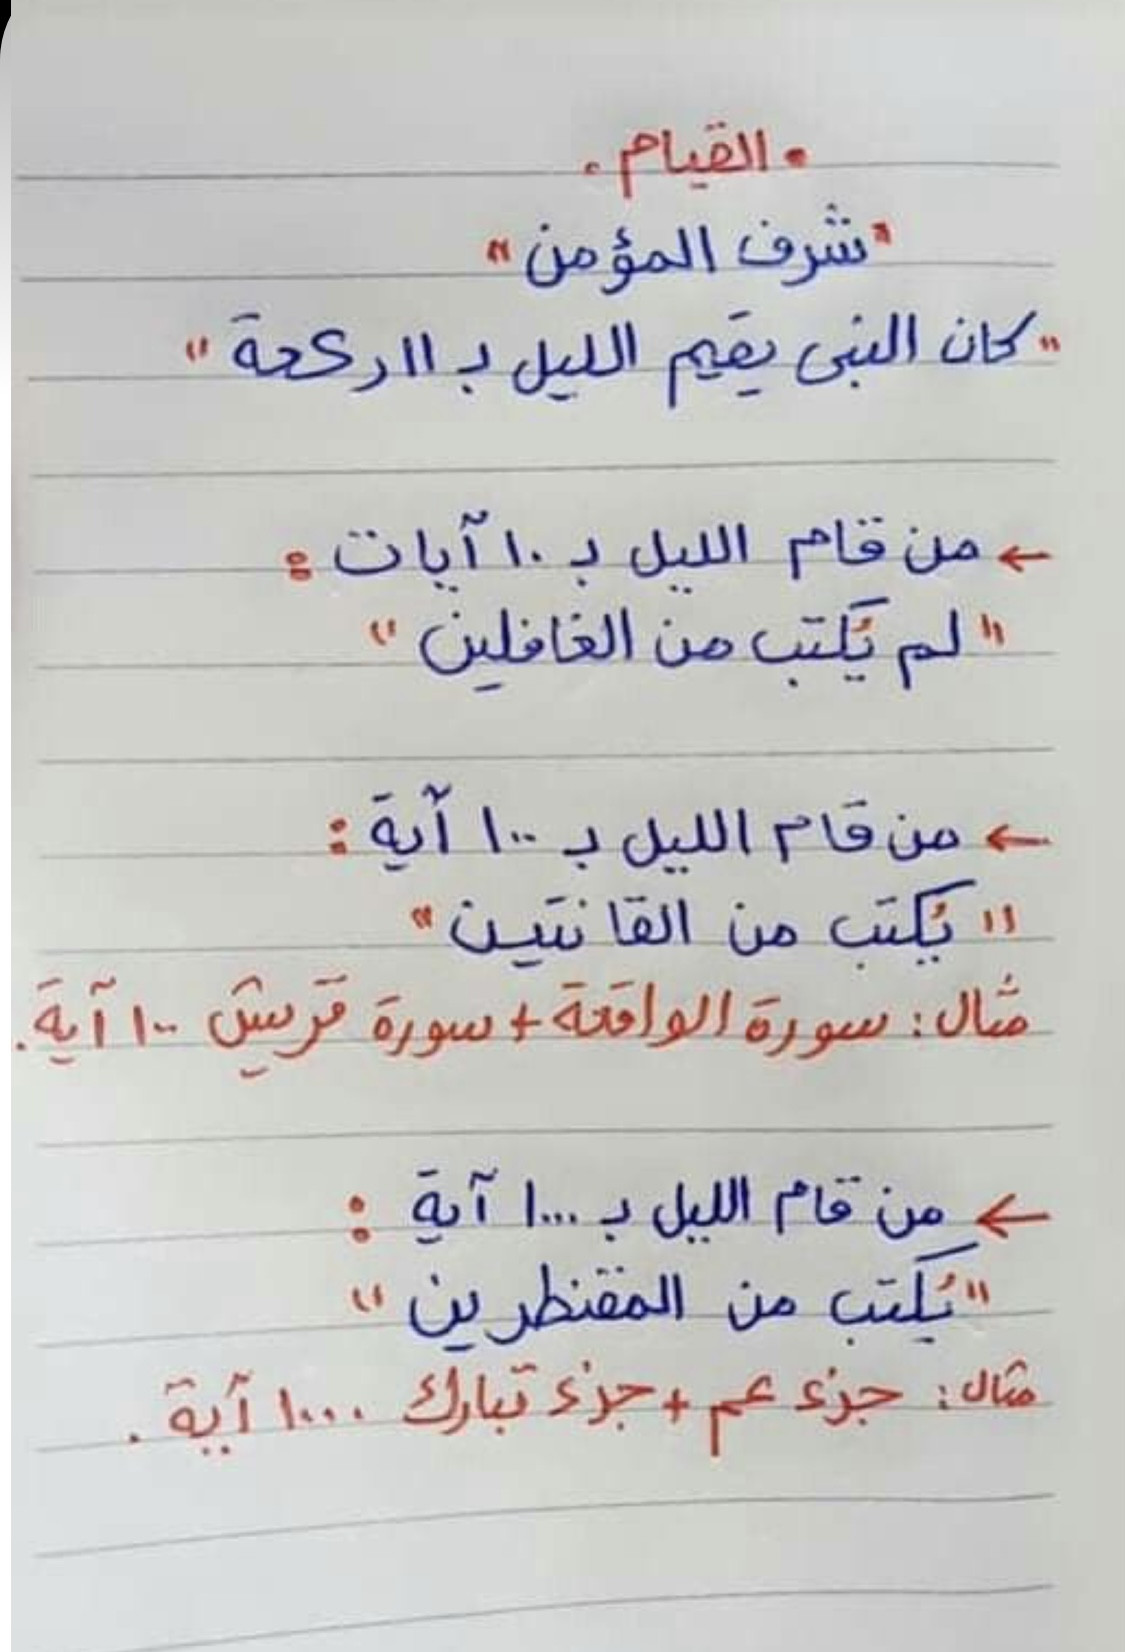 • القيام •
"شرف المؤمن"
"كان النبى يقيم الليل بـ ١١ ركعة"
← من قام الليل بـ ١٠ آيات :
"لم يُكتب من الغافلين"
← من قام الليل بـ ١٠٠ آية :
"يُكتب من القانتين"
مثال : سورة الواقعة + سورة قريش ١٠٠ آية .
← من قام الليل بـ ١٠٠٠ آية :
"يُكتب من المقنطرين"
مثال : جزء عم + جزء تبارك ١٠٠٠ آية .